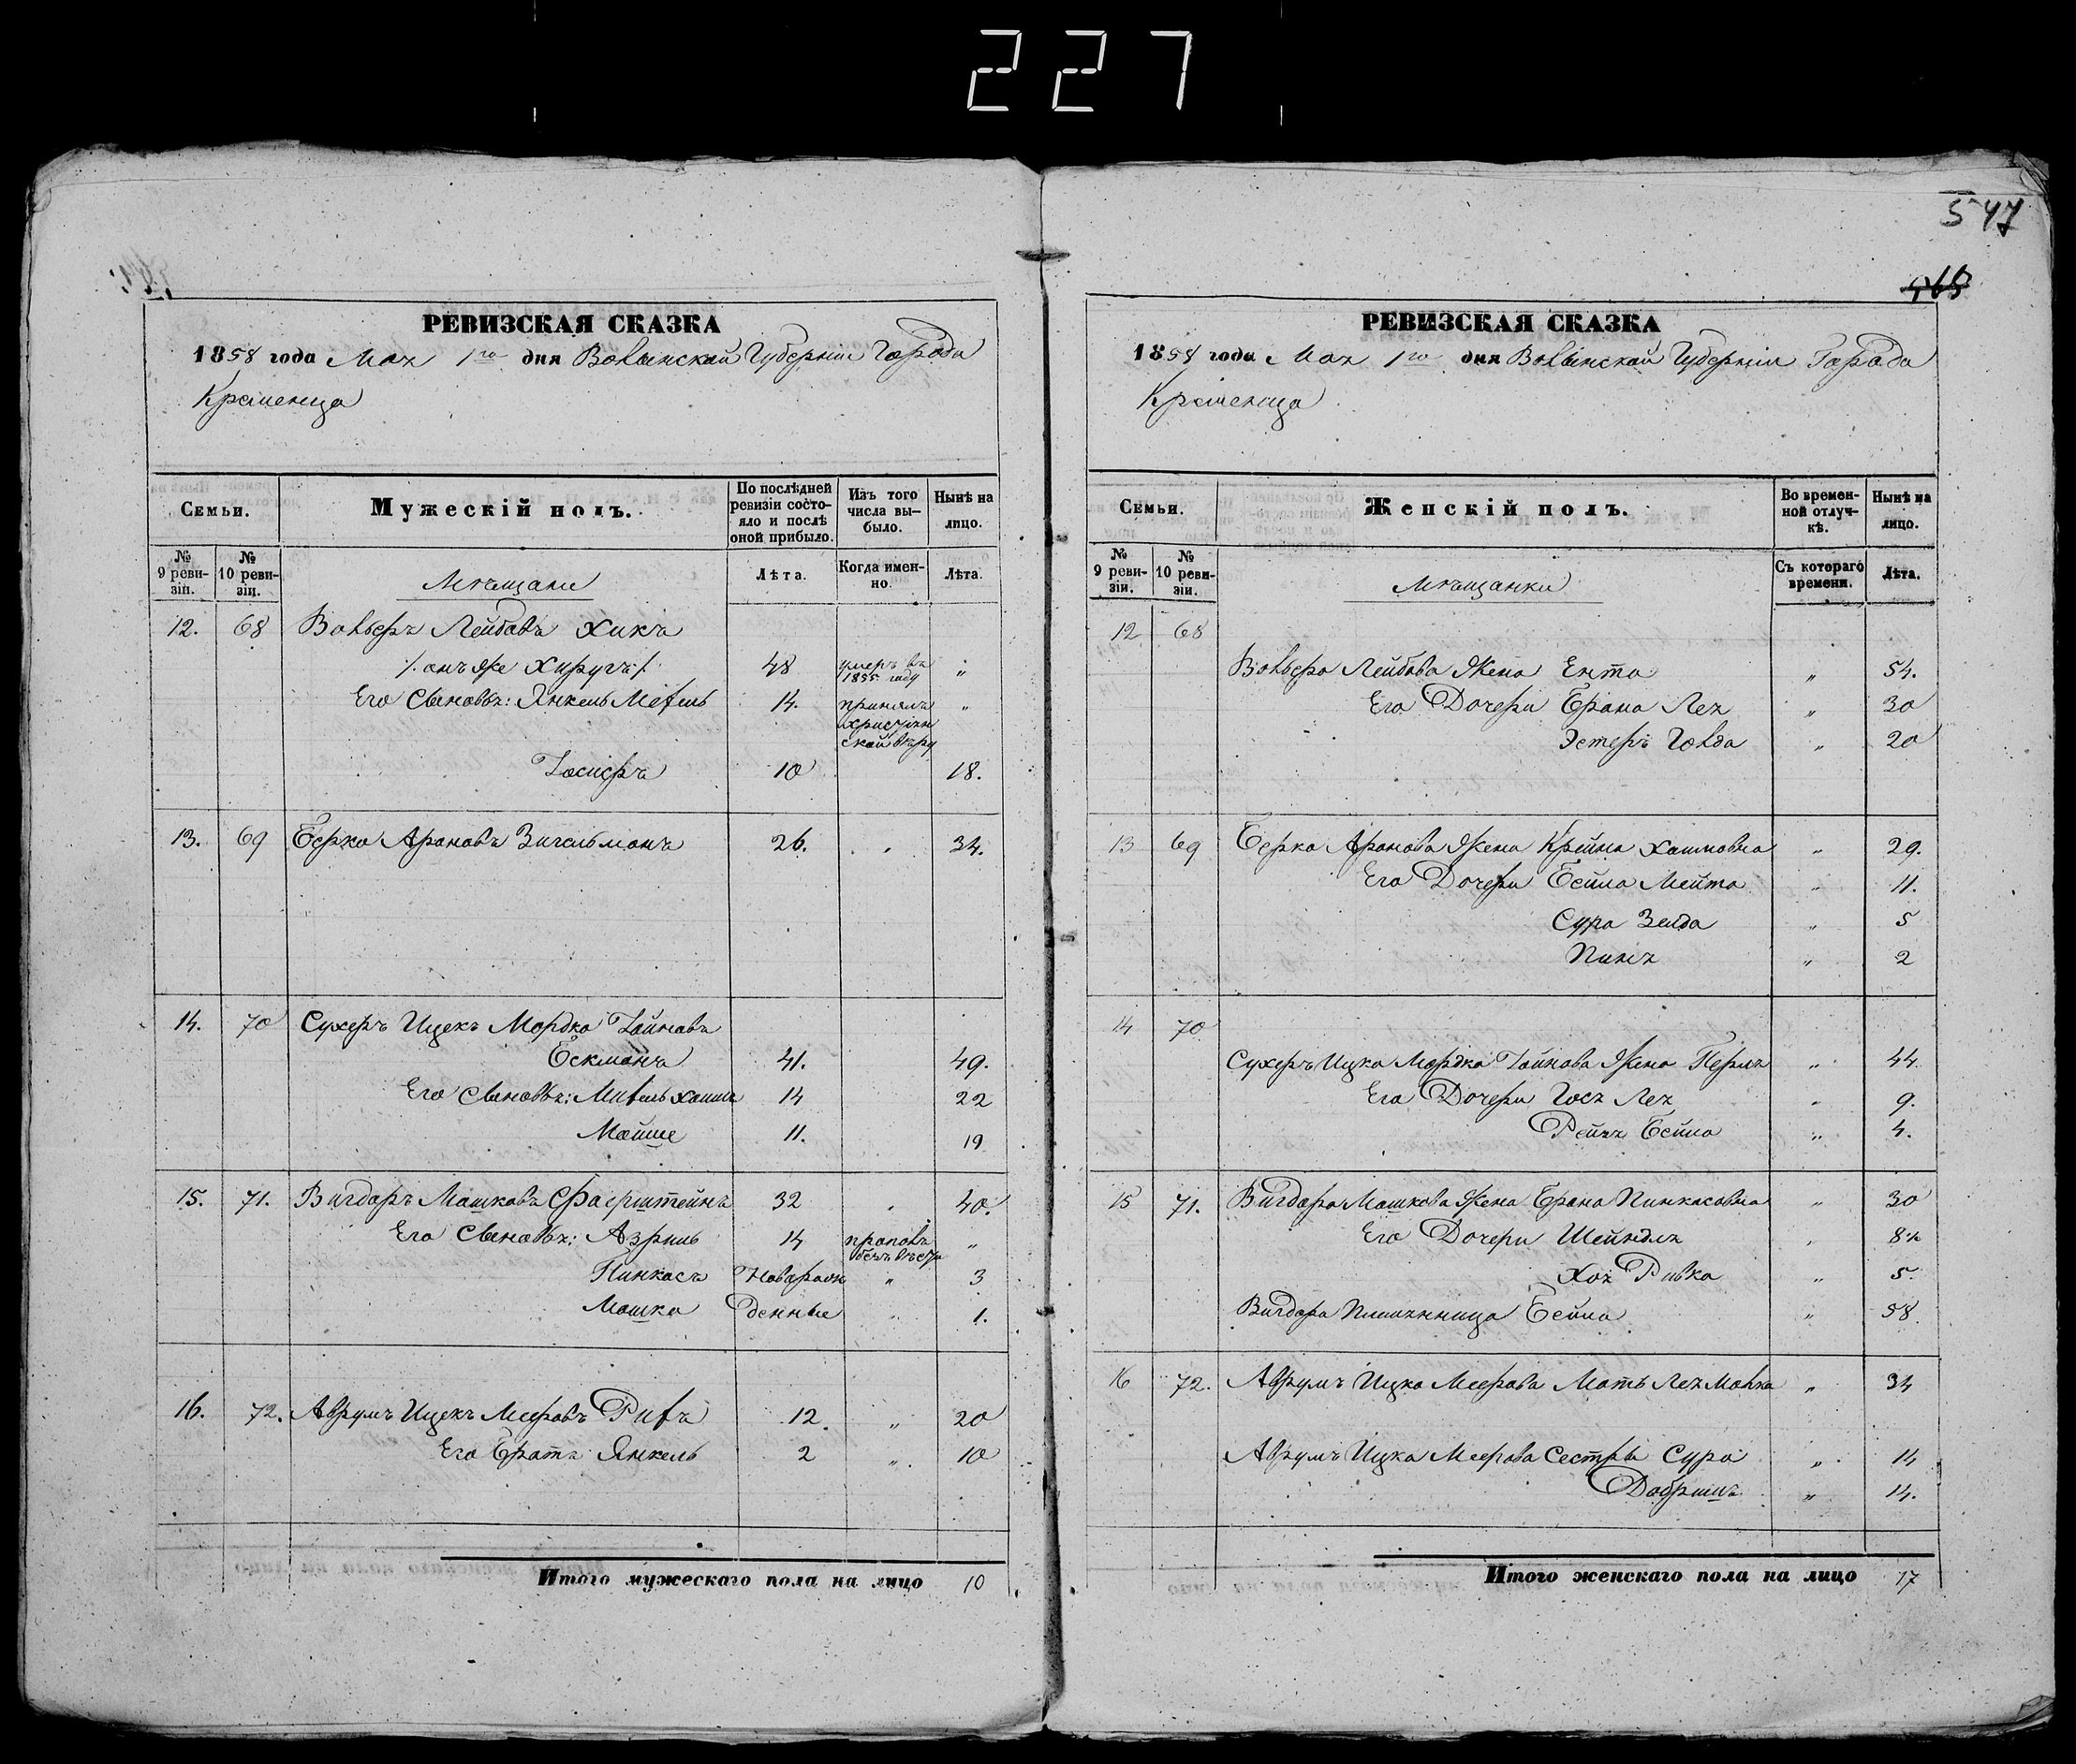 227
547
565
РЕВИЗСКАЯ СКАЗКА
1858 года Мая 1го дня Волынской Губерніи Города
Кременца
Семьи.
Мужескій полъ.
По послѣдней ревизіи состояло и послѣ оной прибыло.
Изъ того числа выбыло.
Нынѣ на лицо.
№ 9 ревизіи.
№ 10 ревизіи.
Мѣщане
Лѣта.
Когда именно.
Лѣта.
12. 68 Вольфъ Лейбовъ Хикъ
/: онъ же Хиругъ :/ 48 умеръ въ 1855 году "
Его Сыновья: Янкель Мехель 14. принялъ христіянской вѣру "
Іосифъ 10 18.
13. 69 Берко Ароновъ Зигельманъ 26. " 34.
14. 70 Сухеръ Ицекъ Мордко Іойновъ
Бекманъ 41. 49.
Его Сыновья: Михель Хаимъ 14 22
Мойше 11. 19
15. 71. Вигдоръ Мошковъ Фаерштейнъ 32 " 40.
Его Сыновья: Азриль 14 пропалъ безъ вѣсти "
Пинкасъ Новорож 3
Мошко денные " 1.
16. 72. Аврумъ Ицекъ Мееровъ Рифъ 12. " 20
Его Братъ Янкель 2 " 10
Итого мужескаго пола на лицо 10
РЕВИЗСКАЯ СКАЗКА
1858 года Мая 1го дня Волынской Губерніи Города
Кременца
Семьи.
Женскій полъ.
Во временной отлучкѣ.
Нынѣ на лицо.
№ 9 ревизіи.
№ 10 ревизіи.
Мѣщанки
Съ котораго времени.
Лѣта.
12 68
Вольфа Лейбова Жена Ента " 54.
Его Дочери Брана Лея " 30
Эстеръ Голда " 20
13 69 Берка Аронова Жена Крейна Хаимовна " 29.
Его Дочери Бейла Мейта " 11.
Сура Зелда " 5
Пиня " 2
14 70
Сухеръ Ицка Мордка Іойнова Жена Перля " 44
Его Дочери Гося Лея " 9.
Рейзя Бейла " 4.
15 71. Вигдора Мошкова Жена Брана Пинкасовна " 30
Его Дочери Шейндля " 8½
Хая Ривка " 5.
Вигдора Племянница Бейла " 58
16 72. Аврумъ Ицка Меерова Мать Лея Малка " 34
Аврумъ Ицка Меерова Сестры Сура " 14
Добришъ " 14.
Итого женскаго пола на лицо 17